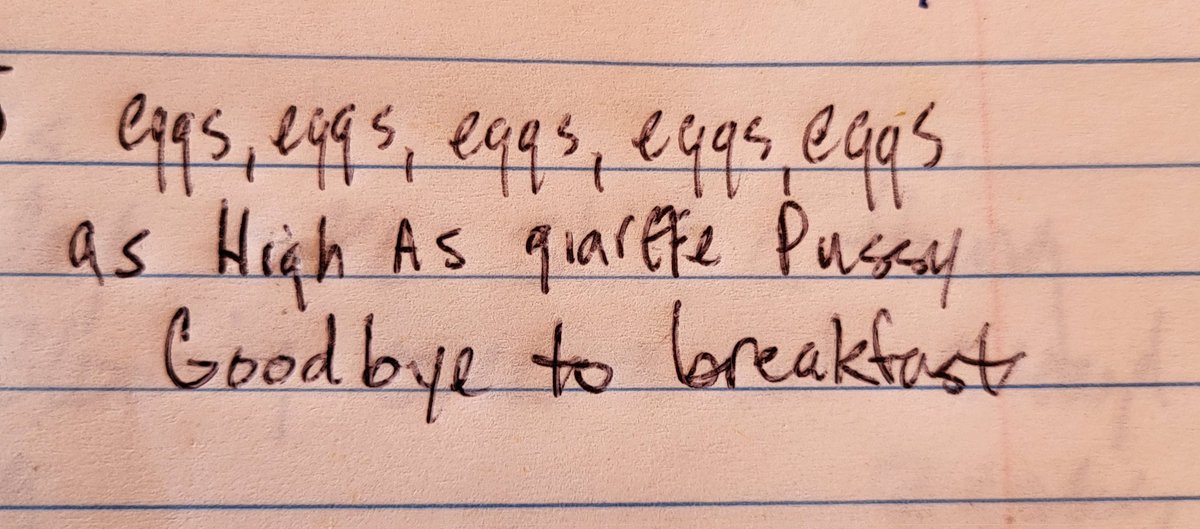 eggs, eggs, eggs, eggs, eggs
as High As giarffe Pussy
Goodbye to breakfast